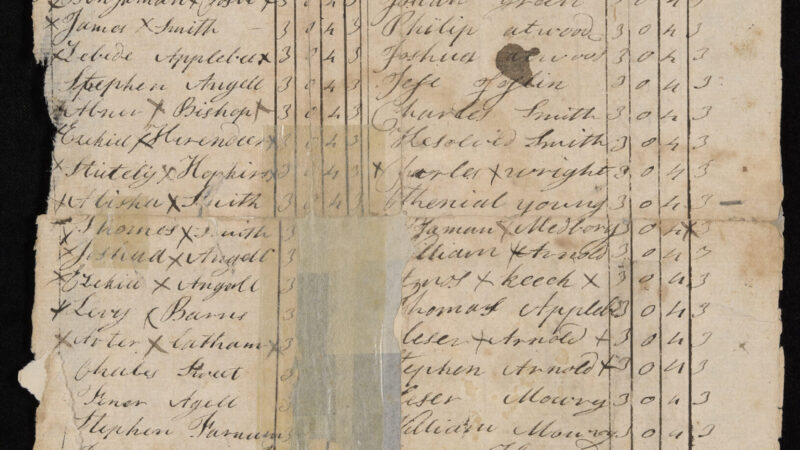 James x Smith 3 0 4 3 Philip atwood 3 0 4 3
Zebede Applebee x 3 0 4 3 Joshua atwood 3 0 4 3
Stephen Angell 3 0 4 3 Jese 3 0 4 3
x Abner x Bishop x 3 0 4 3 Charles Smith 3 0 4 3
Ezekiel x Herendeen 3 0 4 3 Resolved Smith 3 0 4 3
x Stutely x Hopkins x 3 0 4 3 x x wright 3 0 4 3
x Abisha x Smith 3 0 4 3 young 3 0 4 3
x Thomas x Smith 3 x Medbory 3 0 4 x 3
x Joshua x Angell 3 illiam x Arnold 3 0 4 3
x Ezekiel x Angell 3 x Keech x 3 0 4 3
x Levy x Barns 3 homas Appleb 3 0 4 3
x Arter x Latham x 3 leser x Arnold x 3 0 4 3
Charles Sweet 3 tephen Arnold x 3 0 4 3
Fenor Agell 3 leser Mowry 3 0 4 3
Stephen Farnum 3 William Mowry 3 0 4 3